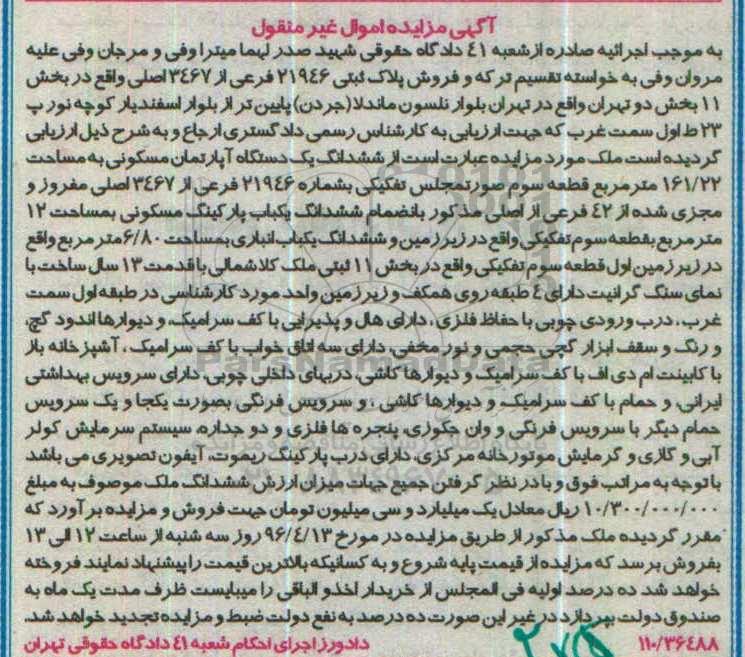 آگهی مزایده اموال غیر منقول
به موجب اجرائیه صادره از شعبه ٤١ دادگاه حقوقی شهید صدر لهما میترا وفی و مرجان وفی علیه
مروان وفی به خواسته تقسیم ترکه و فروش پلاک ثبتی ٢١٩٤٦ فرعی از ٣٤٦٧ اصلی واقع در بخش
١١ بخش دو تهران واقع در تهران بلوار نلسون ماندلا (جردن) پایین تر از بلوار اسفندیار کوچه نور پ
٢٣ ط اول سمت غرب که جهت ارزیابی به کارشناس رسمی دادگستری ارجاع و به شرح ذیل ارزیابی
گردیده است ملک مورد مزایده عبارت است از ششدانگ یک دستگاه آپارتمان مسکونی به مساحت
١٦١/٢٢ مترمربع قطعه سوم صورتمجلس تفکیکی بشماره ٢١٩٤٦ فرعی از ٣٤٦٧ اصلی مفروز و
مجزی شده از ٤٢ فرعی از اصلی مذکور بانضمام ششدانگ یکباب پارکینگ مسکونی بمساحت ١٢
متر مربع بقطعه سوم تفکیکی واقع در زیرزمین و ششدانگ یکباب انباری بمساحت ٦/٨٠ متر مربع واقع
در زیر زمین اول قطعه سوم تفکیکی واقع در بخش ١١ ثبتی ملک کلا شمالی با قدمت ١٣ سال ساخت با
نمای سنگ گرانیت دارای ٤ طبقه روی همکف و زیرزمین واحد مورد کارشناسی در طبقه اول سمت
غرب ، درب ورودی چوبی با حفاظ فلزی ، دارای هال و پذیرایی با کف سرامیک، و دیوارها اندود گچ،
و رنگ و سقف ابزار گچی حجمی و نور مخفی، دارای سه اتاق خواب با کف سرامیک ، آشپزخانه باز
با کابینت ام دی اف با کف سرامیک و دیوارها کاشی، دربهای داخلی چوبی، دارای سرویس بهداشتی
ایرانی و حمام با کف سرامیک، و دیوارها کاشی ، و سرویس فرنگی بصورت یکجا و یک سرویس
حمام دیگر با سرویس فرنگی و وان جکوزی، پنجره ها فلزی و دو جداره، سیستم سرمایش کولر
آبی و گازی و گرمایش موتورخانه مرکزی، دارای درب پارکینگ ریموت، آیفون تصویری می باشد
با توجه به مراتب فوق و با در نظر گرفتن جمیع جهات میزان ارزش ششدانگ ملک موصوف به مبلغ
١٠/٣٠٠/٠٠٠/٠٠٠ ریال معادل یک میلیارد و سی میلیون تومان جهت فروش و مزایده برآورد که
مقرر گردیده ملک مذکور از طریق مزایده در مورخ ٩٦/٤/١٣ روز سه شنبه از ساعت ١٢ الی ١٣
بفروش برسد که مزایده از قیمت پایه شروع و به کسانیکه بالاترین قیمت را پیشنهاد نمایند فروخته
خواهد شد ده درصد اولیه فی المجلس از خریدار اخذ و الباقی را میبایست ظرف مدت یک ماه به
صندوق دولت بپردازد در غیر این صورت ده درصد به نفع دولت ضبط و مزایده تجدید خواهد شد.
١١٠/٣٦٤٨٨ دادورز اجرای احکام شعبه ٤١ دادگاه حقوقی تهران